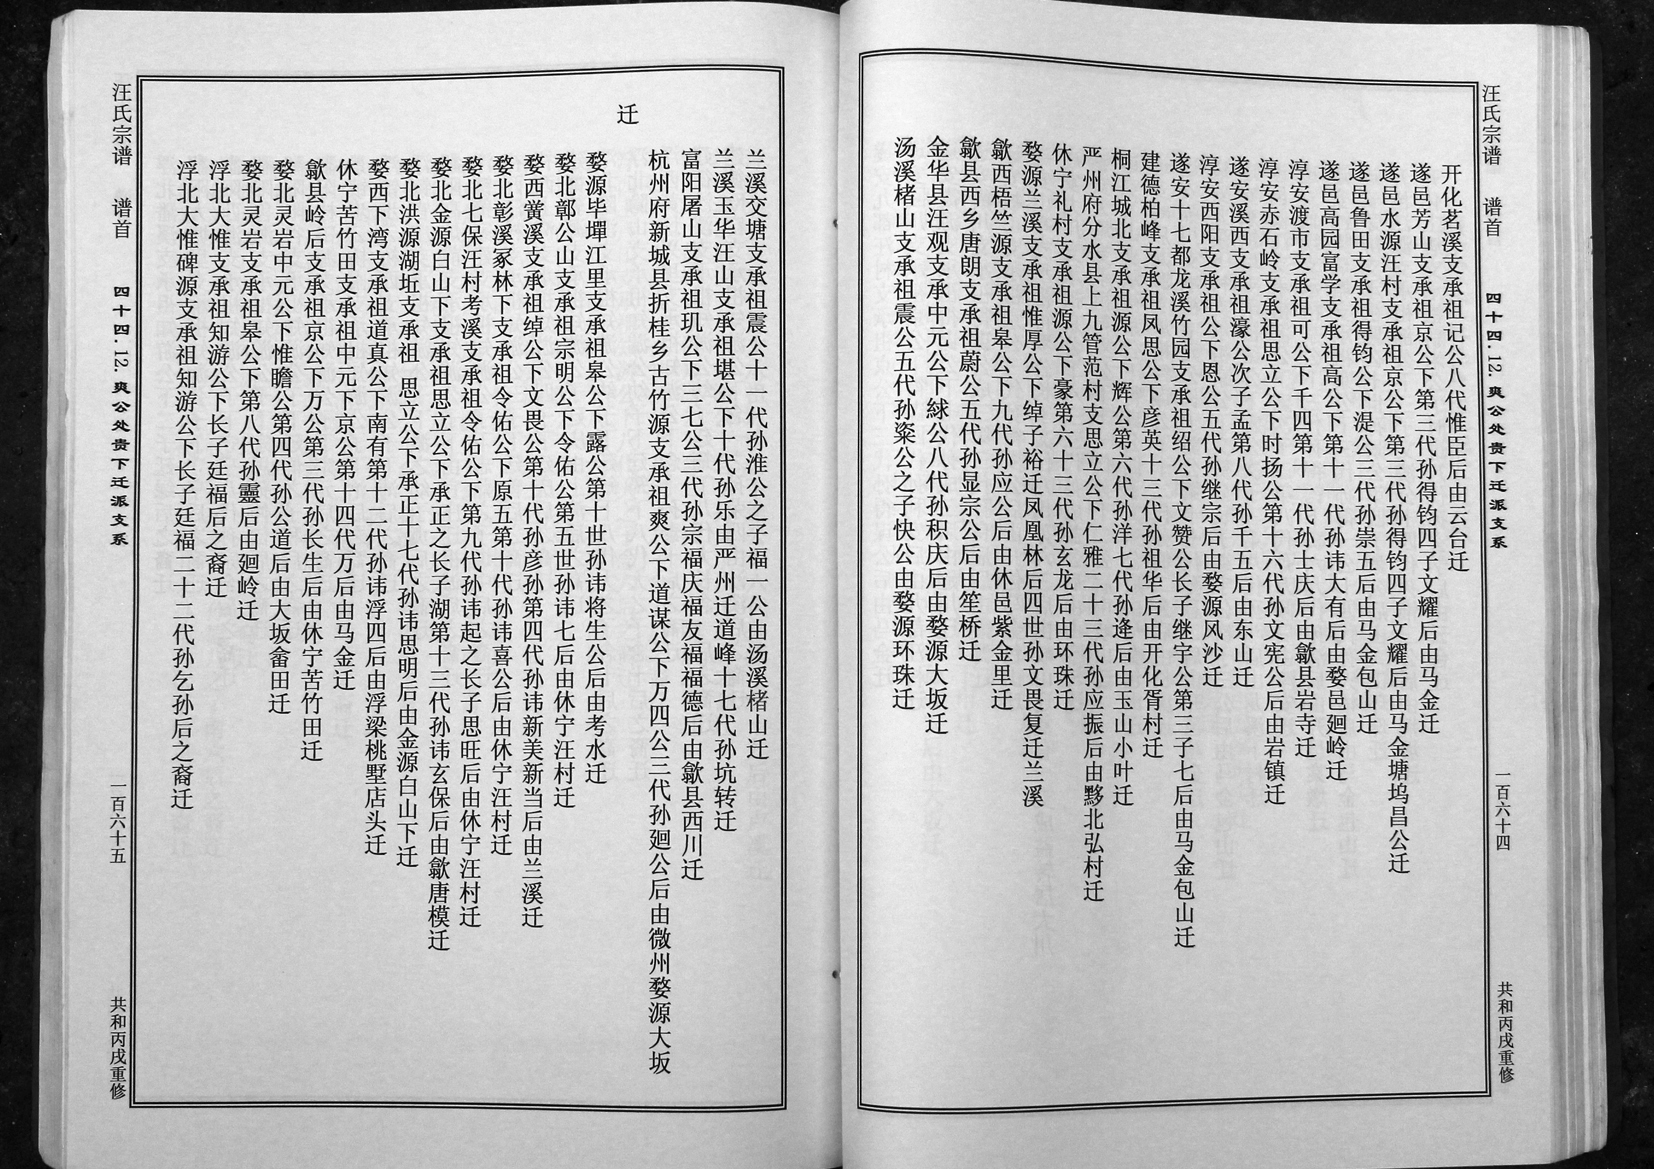 汪氏宗谱 谱首 四十四.12.爽公处贵下迁派支系 一百六十四 共和丙戌重修
开化茗溪支承祖记公八代惟臣后由云台迁
遂邑芳山支承祖京公下第三代孙得钧四子文耀后由马金迁
遂邑水源汪村支承祖京公下第三代孙得钧四子文耀后由马金塘坞昌公迁
遂邑鲁田支承祖得钧公下湜公三代孙崇五后由马金包山迁
遂邑高园富学支承祖高公下第十一代孙讳大有后由婺邑廻岭迁
淳安渡市支承祖可公下千四第十一代孙士庆后由歙县岩寺迁
淳安赤石岭支承祖思立公下时扬公第十六代孙文宪公后由岩镇迁
遂安溪西支承祖濠公次子孟第八代孙千五后由东山迁
淳安西阳支承祖公下恩公五代孙继宗后由婺源风沙迁
遂安十七都龙溪竹园支承祖绍公下文赞公长子继宇公第三子七后由马金包山迁
建德柏峰支承祖凤思公下彦英十三代孙祖华后由开化胥村迁
桐江城北支承祖源公下辉公第六代孙洋七代孙逄后由玉山小叶迁
严州府分水县上九管范村支思立公下仁雅二十三代孙应振后由黟北弘村迁
休宁礼村支承祖源公下豪第六十三代孙玄龙后由环珠迁
婺源兰溪支承祖惟厚公下绰子裕迁凤凰林后四世孙文畏复迁兰溪
歙西梧竺源支承祖皋公下九代孙应公后由休邑紫金里迁
歙县西乡唐朗支承祖蔚公五代孙显宗公后由笙桥迁
金华县汪观支承中元公下絿公八代孙积庆后由婺源大坂迁
汤溪楮山支承祖震公五代孙楶公之子快公由婺源环珠迁
兰溪交塘支承祖震公十一代孙淮公之子福一公由汤溪楮山迁
兰溪玉华汪山支承祖堪公下十代孙乐由严州迁道峰十七代孙坑转迁
富阳屠山支承祖玑公下三七公三代孙宗福庆福友福福德后由歙县西川迁
杭州府新城县折桂乡古竹源支承祖爽公下道谋公下万四公三代孙廻公后由微州婺源大坂
迁
婺源毕墠江里支承祖皋公下露公第十世孙讳将生公后由考水迁
婺北鄣公山支承祖宗明公下令佑公第五世孙讳七后由休宁汪村迁
婺西黉溪支承祖绰公下文畏公第十代孙彦孙第四代孙讳新美新当后由兰溪迁
婺北彰溪冢林下支承祖令佑公下原五第十代孙讳喜公后由休宁汪村迁
婺北七保汪村考溪支承祖令佑公下第九代孙讳起之长子思旺后由休宁汪村迁
婺北金源白山下支承祖思立公下承正之长子湖第十三代孙讳玄保后由歙唐模迁
婺北洪源湖坵支承祖 思立公下承正十七代孙讳思明后由金源白山下迁
婺西下湾支承祖道真公下南有第十二代孙讳浮四后由浮梁桃墅店头迁
休宁苦竹田支承祖中元下京公第十四代万后由马金迁
歙县岭后支承祖京公下万公第三代孙长生后由休宁苦竹田迁
婺北灵岩中元公下惟瞻公第四代孙公道后由大坂畲田迁
婺北灵岩支承祖皋公下第八代孙靈后由廻岭迁
浮北大惟支承祖知游公下长子廷福后之裔迁
浮北大惟碑源支承祖知游公下长子廷福二十二代孙乞孙后之裔迁
汪氏宗谱 谱首 四十四.12.爽公处贵下迁派支系 一百六十五 共和丙戌重修